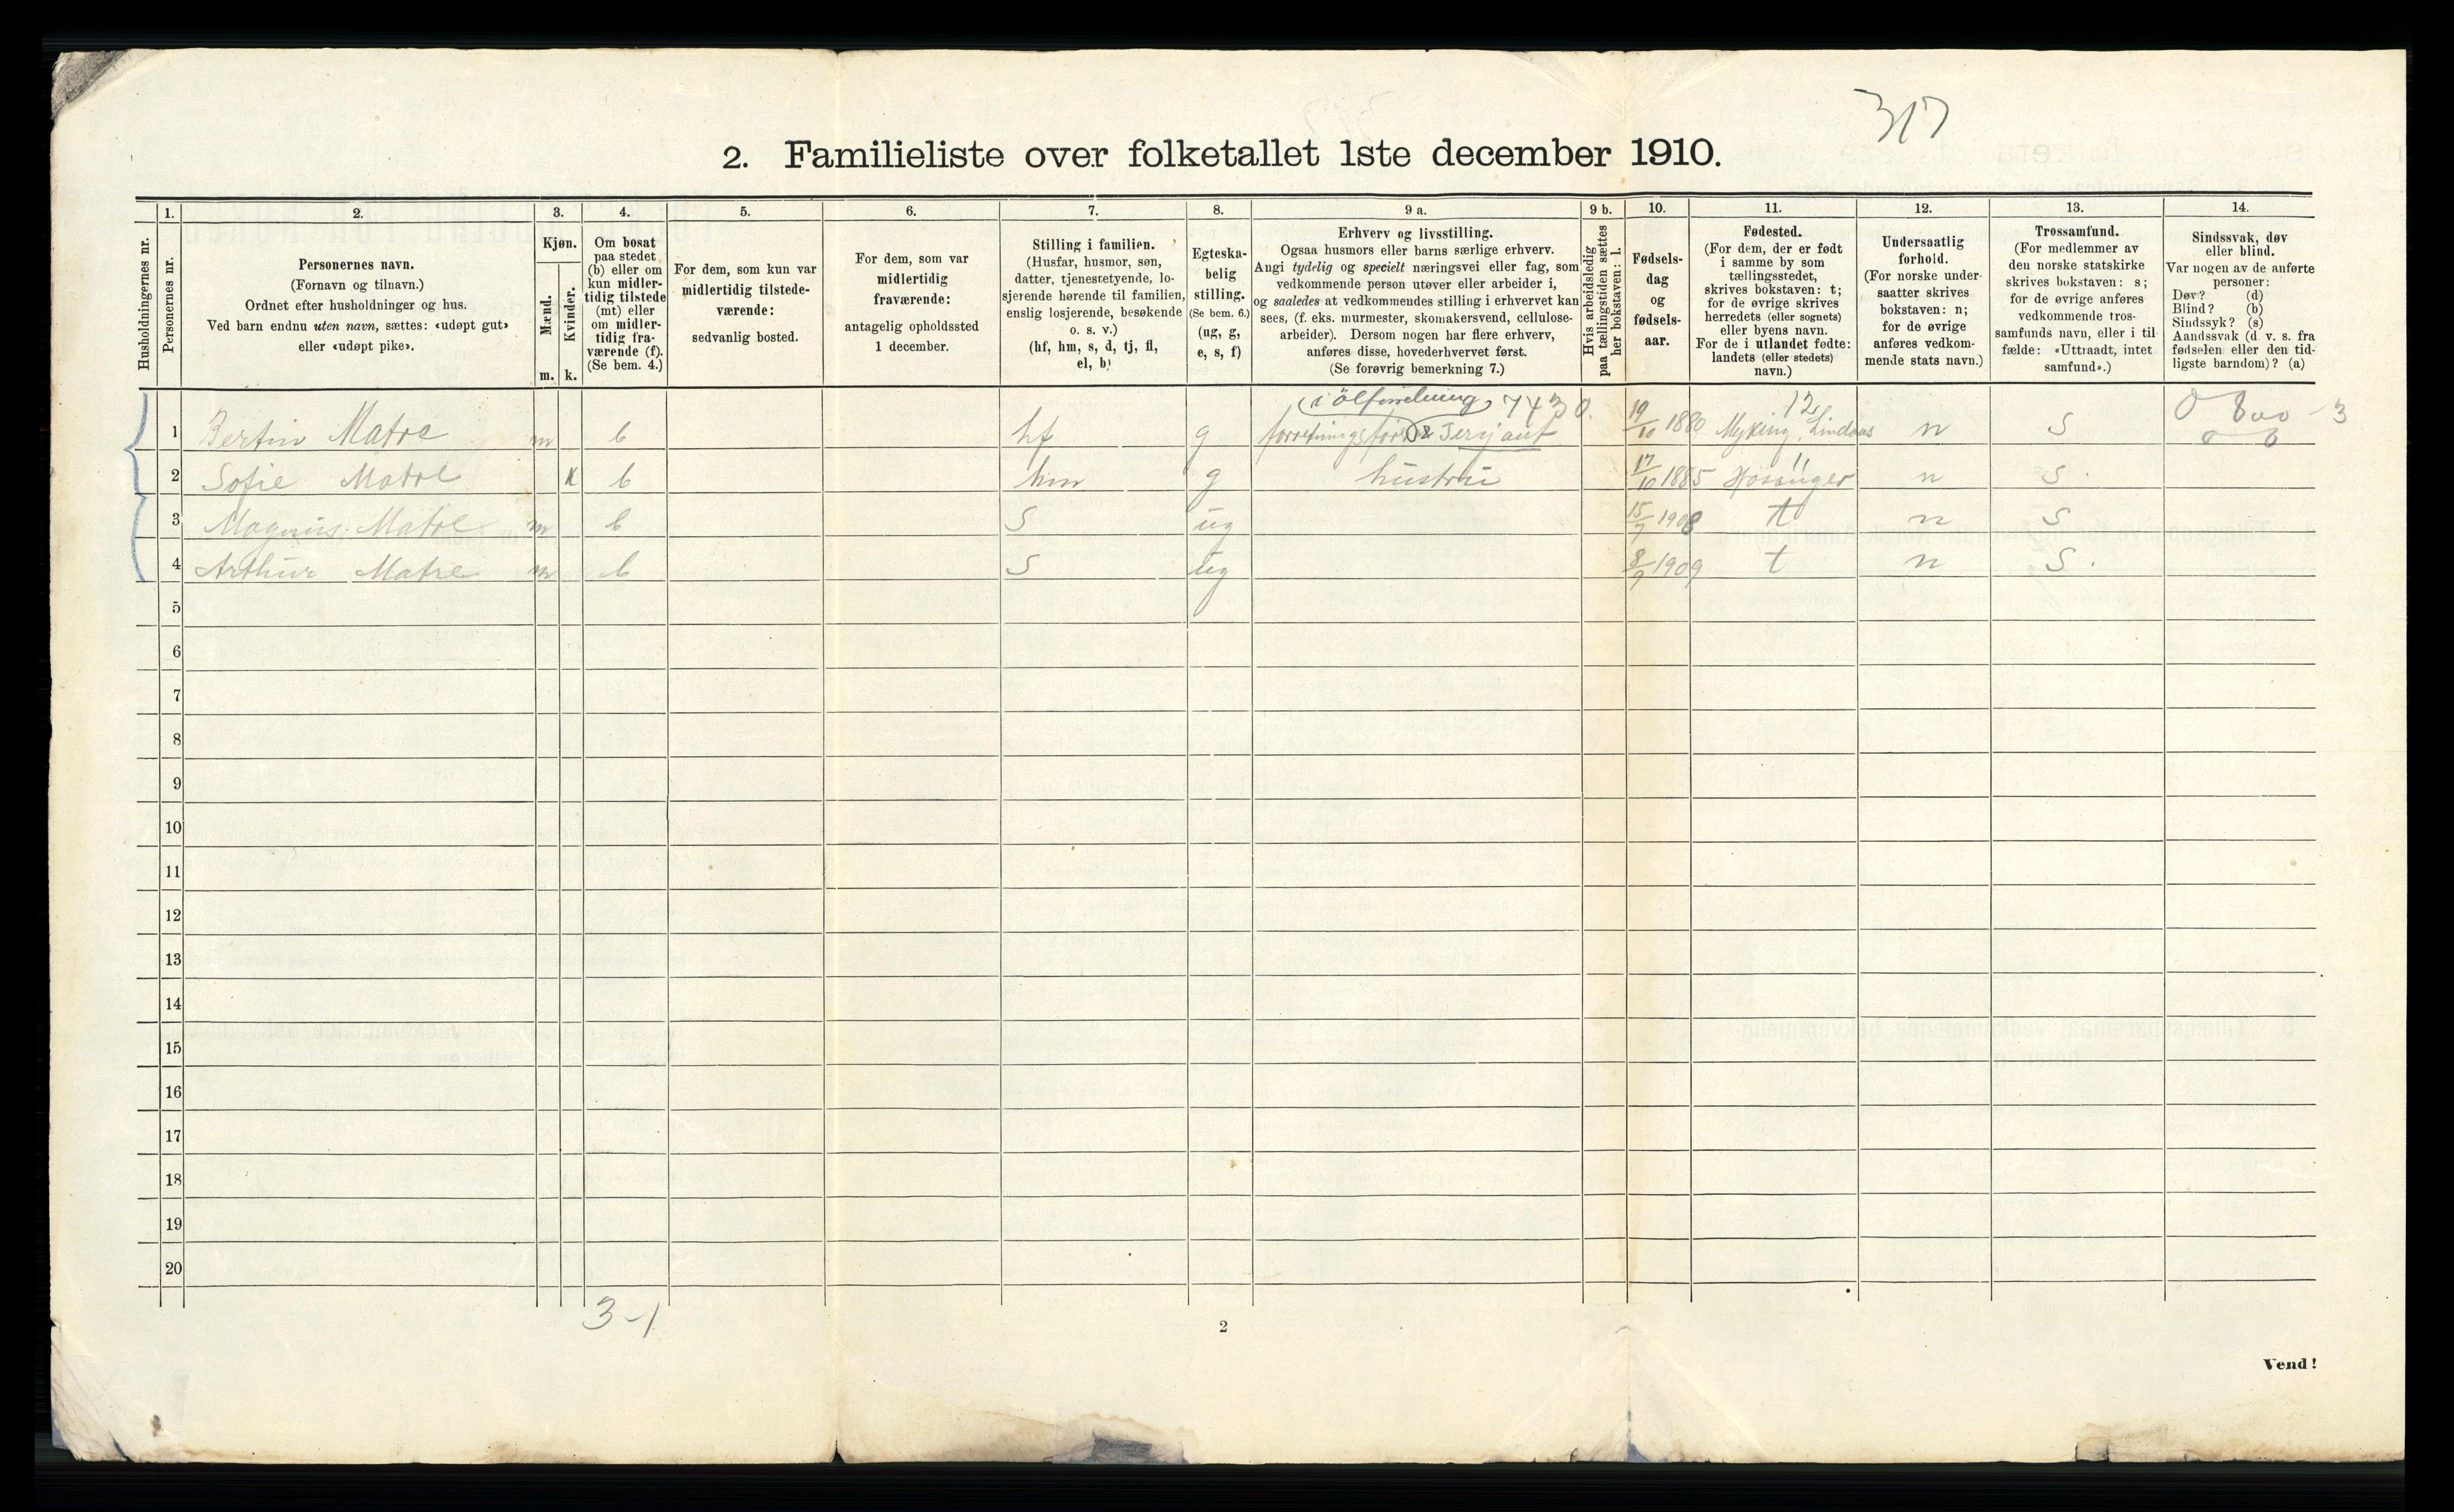 317
2. Familieliste over folketallet 1ste december 1910.
Husholdningernes nr.
1.
Personernes nr.
2.
Personernes navn.
(Fornavn og tilnavn.)
Ordnet efter husholdninger og hus.
Ved barn endnu uten navn, sættes: «udøpt gut»
eller «udøpt pike».
3.
Kjøn.
Mænd.
Kvinder.
m. k.
4.
Om bosat
paa stedet
(b) eller om
kun midler-
tidig tilstede
(mt) eller
om midler-
tidig fra-
værende (f).
(Se bem. 4.)
5.
For dem, som kun var
midlertidig tilstede-
værende:
sedvanlig bosted.
6.
For dem, som var
midlertidig
fraværende:
antagelig opholdssted
1 december.
7.
Stilling i familien.
(Husfar, husmor, søn,
datter, tjenestetyende, lo-
sjerende hørende til familien,
enslig losjerende, besøkende
o. s. v.)
(hf, hm, s, d, tj, fl,
el, b)
8.
Egteska-
belig
stilling.
(Se bem. 6.)
(ug, g,
e, s, f)
9 a.
Erhverv og livsstilling.
Ogsaa husmors eller barns særlige erhverv.
Angi tydelig og specielt næringsvei eller fag, som
vedkommende person utøver eller arbeider i,
og saaledes at vedkommendes stilling i erhvervet kan
sees, (f. eks. murmester, skomakersvend, cellulose-
arbeider). Dersom nogen har flere erhverv,
anføres disse, hovederhvervet først.
(Se forøvrig bemerkning 7.)
9 b.
Hvis arbeidsledig
paa tællingstiden sættes
her bokstaven: l.
10.
Fødsels-
dag
og
fødsels-
aar.
11.
Fødested.
(For dem, der er født
i samme by som
tællingsstedet,
skrives bokstaven: t;
for de øvrige skrives
herredets (eller sognets)
eller byens navn.
For de i utlandet fødte:
landets (eller stedets)
navn.)
12.
Undersaatlig
forhold.
(For norske under-
saatter skrives
bokstaven: n;
for de øvrige
anføres vedkom-
mende stats navn.)
13.
Trossamfund.
(For medlemmer av
den norske statskirke
skrives bokstaven: s;
for de øvrige anføres
vedkommende tros-
samfunds navn, eller i til
fælde: «Uttraadt, intet
samfund».)
14.
Sindssvak, døv
eller blind.
Var nogen av de anførte
personer:
Døv? (d)
Blind? (b)
Sindssyk? (s)
Aandssvak (d v. s. fra
fødselen eller den tid-
ligste barndom)? (a)
7430. 12
1 Bertin Matre m b hf g & Sersjant 19/10 1880 Myking, Lindaas n S
11
2 Sofie Matre k b hm g hustru 17/10 1885 Hosanger n S.
3 Magnus Matre m b S ug 15/7 1908 t n S
4 Arthur Matre m b S ug 8/9 1909 t n S.
5
6
7
8
9
10
11
12
13
14
15
16
17
18
19
20
3-1
2
Vend!